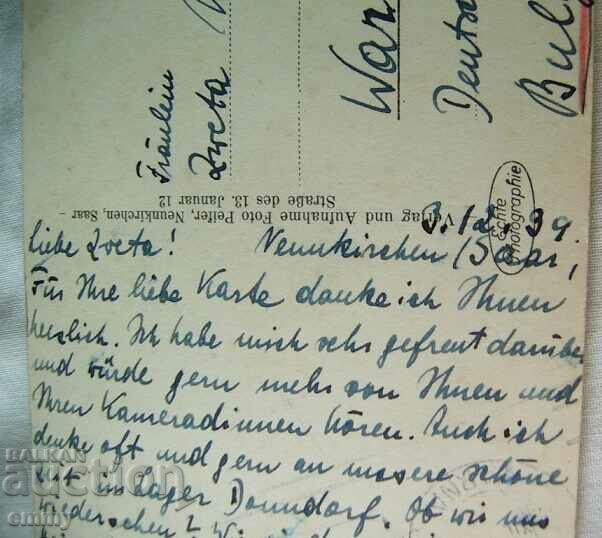 Fräulein
Zweta
War
Deutsc
Bulg
Verlag und Aufnahme Foto Pelter, Neunkirchen, Saar –
Straße des 13. Januar 12
Echte
Photographie
3.12.39
Liebe Zweta! Neunkirchen/Saar,
Für Ihre liebe Karte danke ich Ihnen
herzlich. Ich habe mich sehr gefreut darüber
und würde gern mehr von Ihnen und
Ihren Kameradinnen hören. Auch ich
denke oft und gern an unsere schöne
Zeit im Lager Donndorf. Ob wir uns
wiedersehen?
BALKAN
auction
emmy